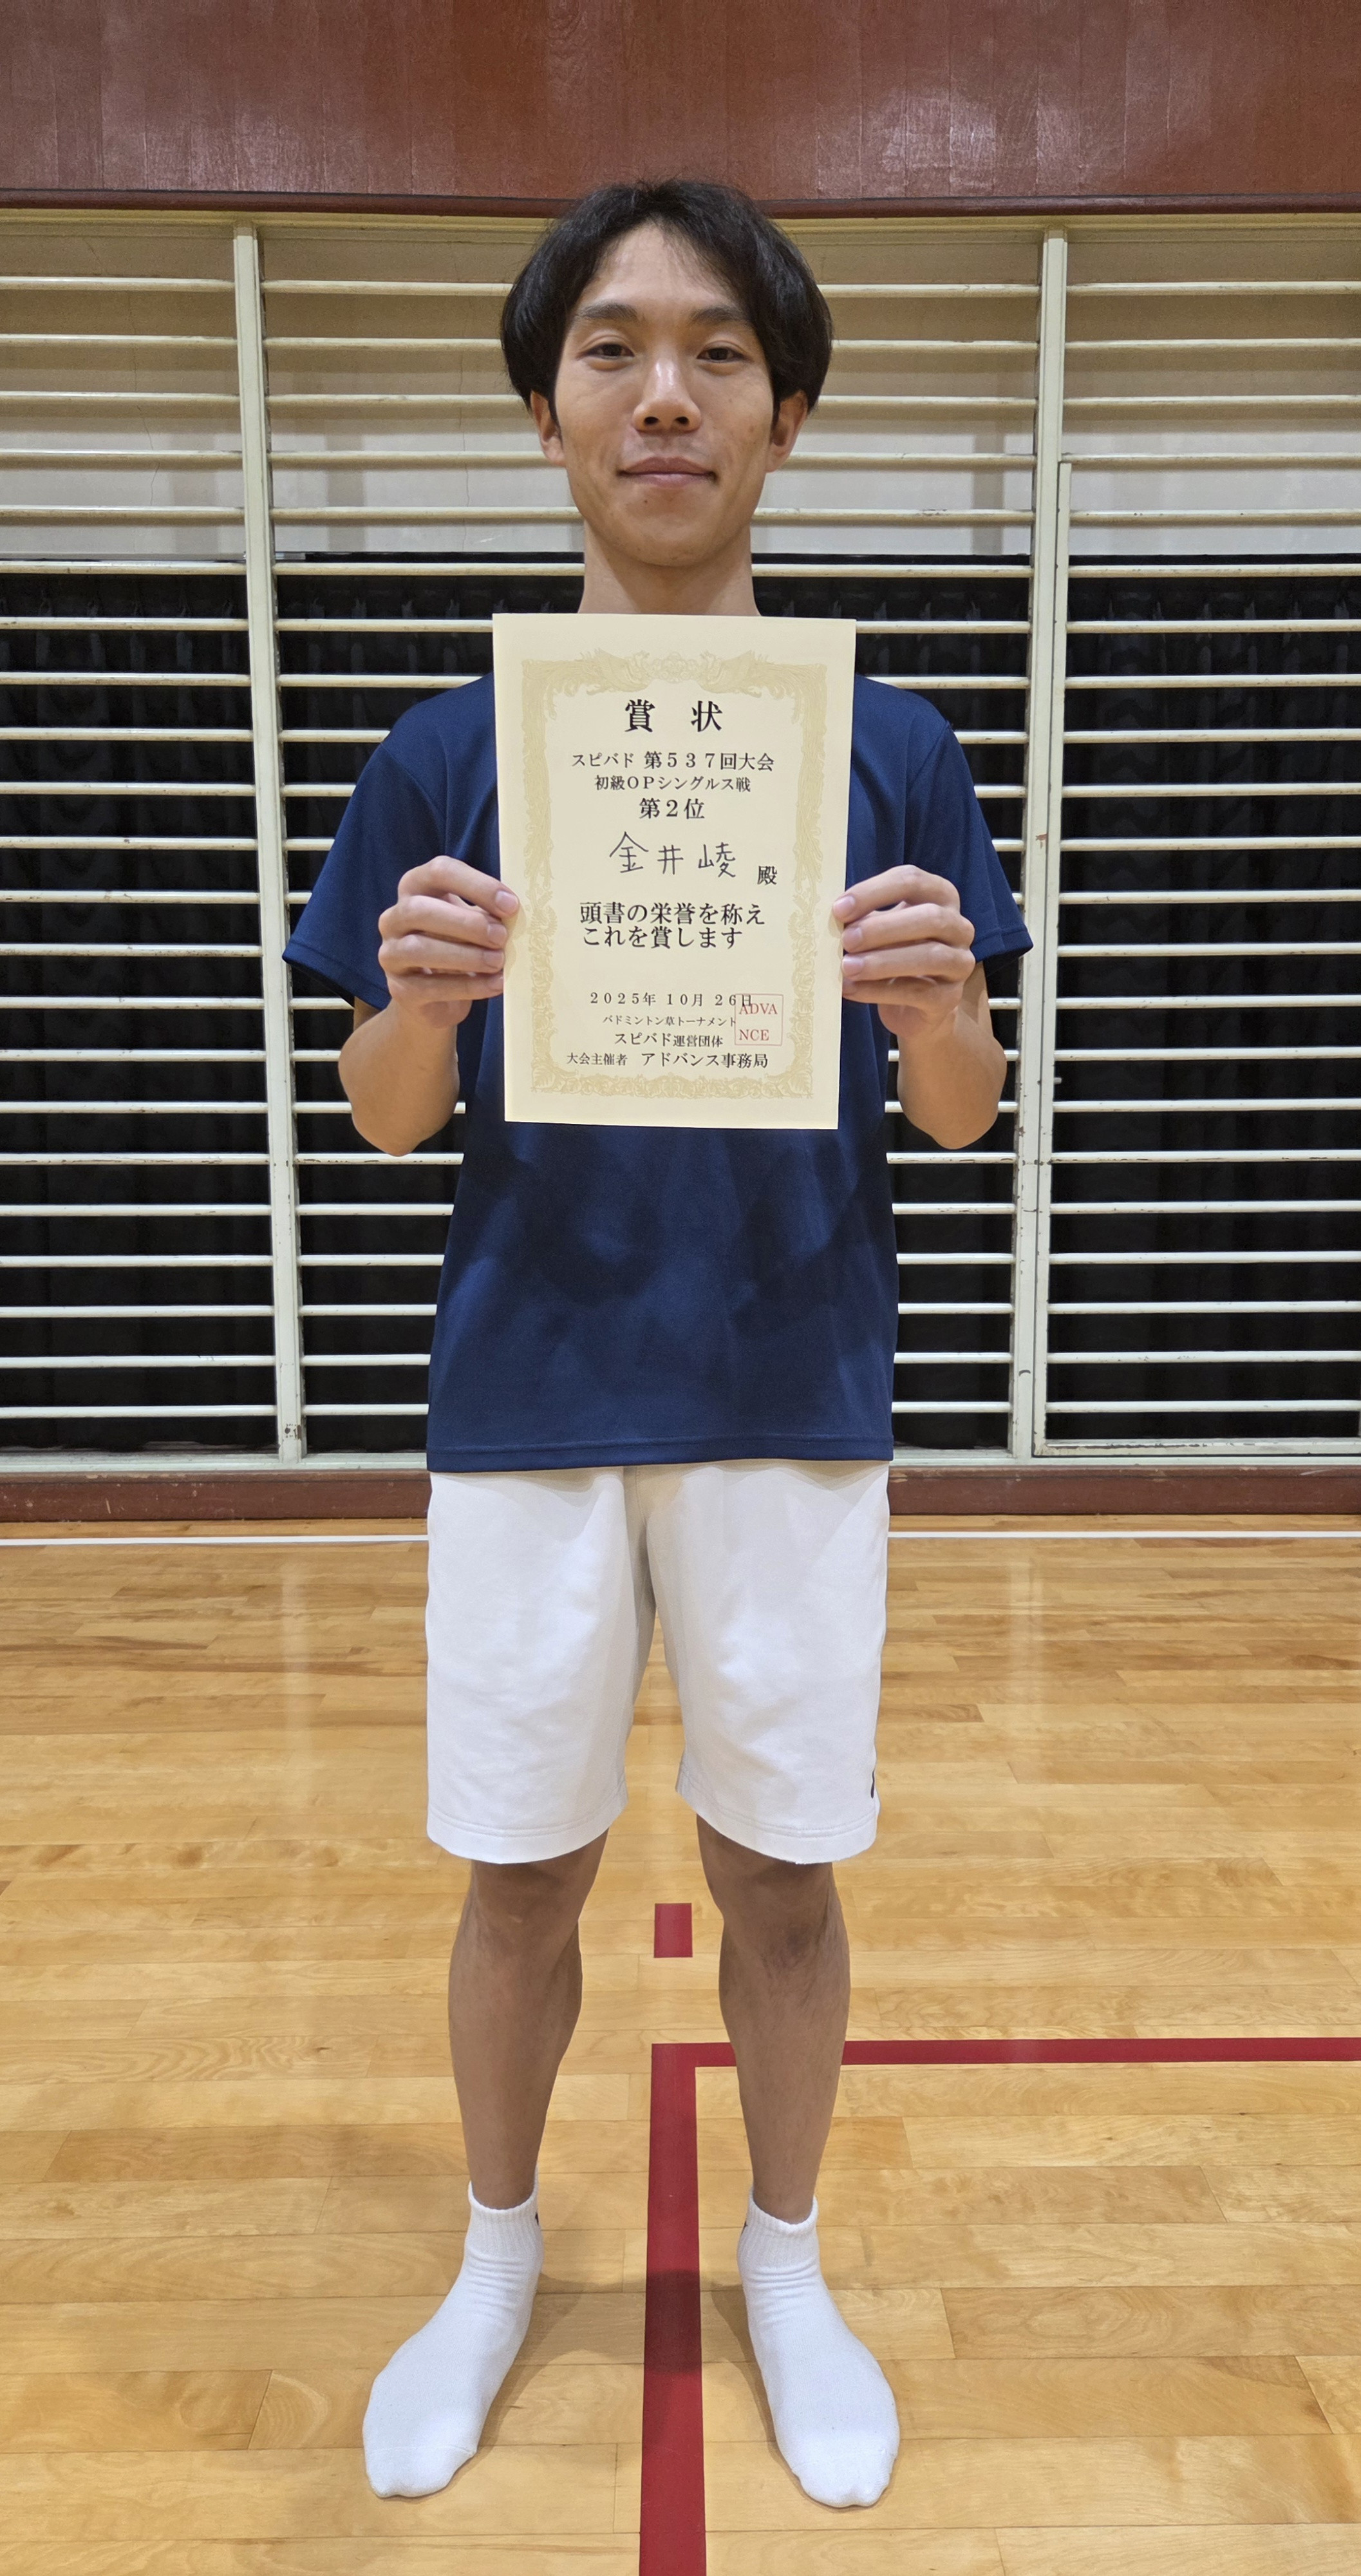 賞 状
スピバド 第537回大会
初級OPシングルス戦
第2位
金井崚 殿
頭書の栄誉を称え
これを賞します
2025年 10月 26日
バドミントン草トーナメント
スピバド運営団体
大会主催者 アドバンス事務局
ADVA
NCE